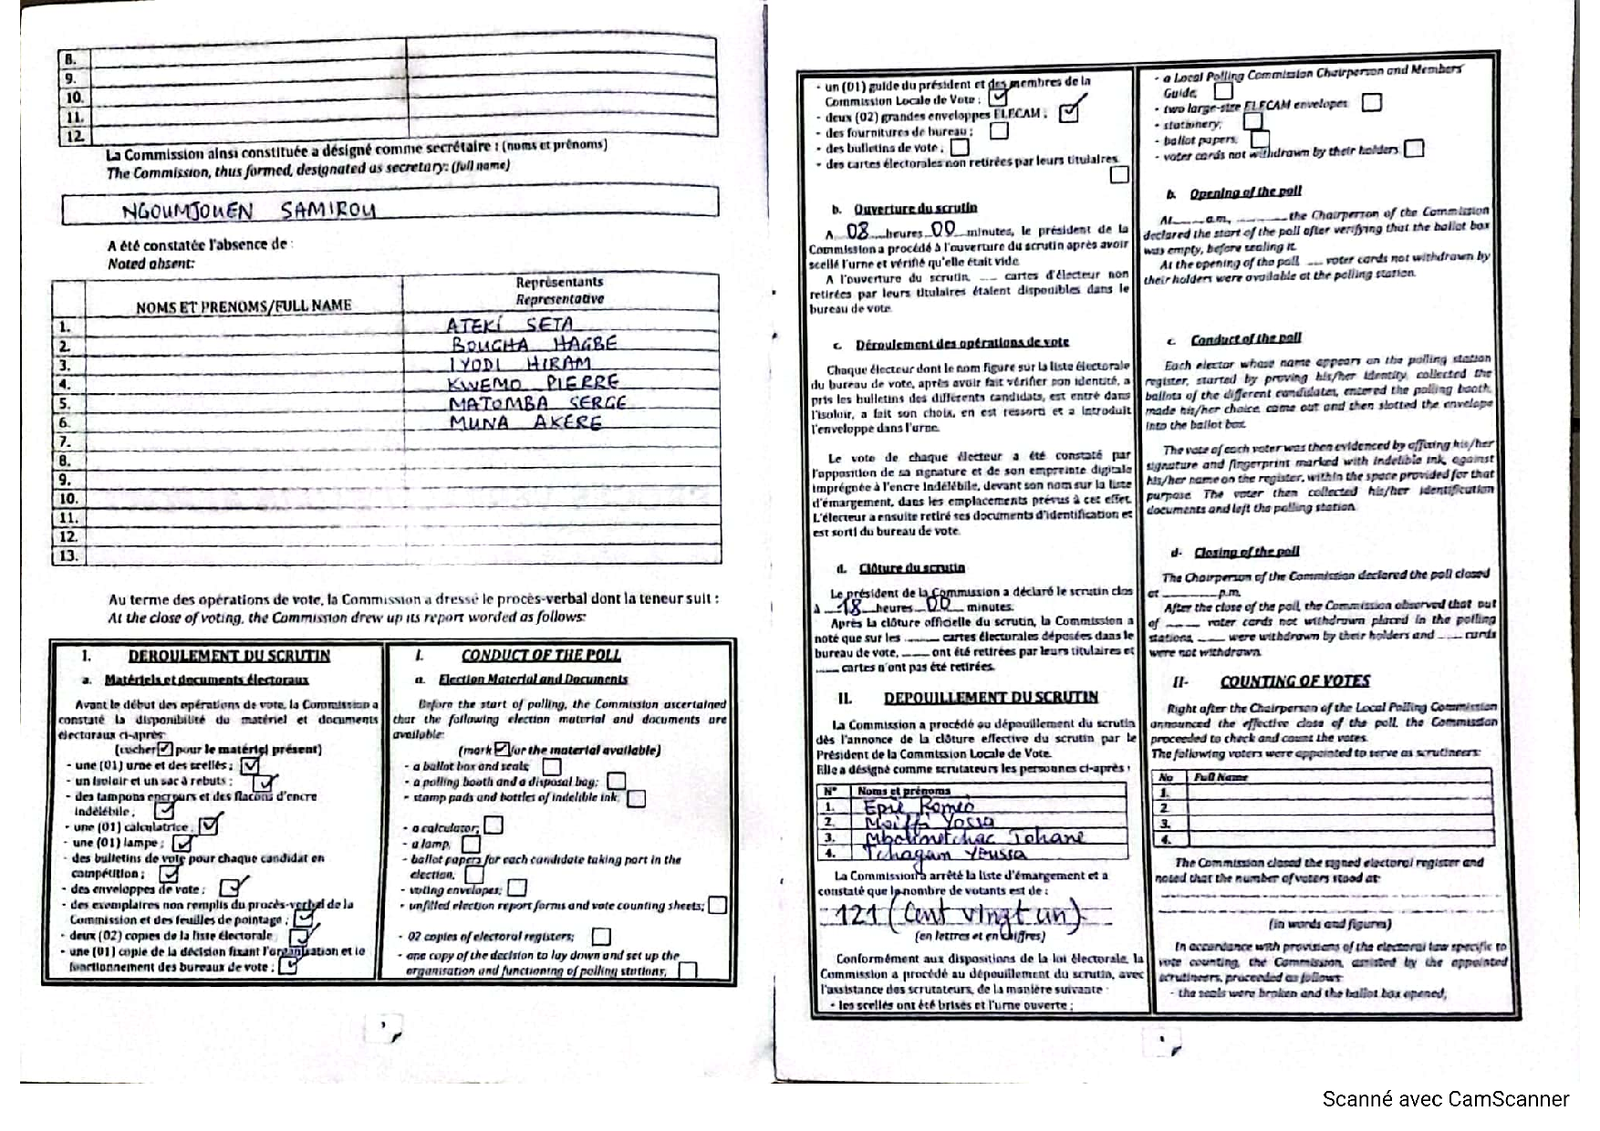 8.
9.
10.
11.
12.
La Commission ainsi constituée a désigné comme secrétaire : (noms et prénoms)
The Commission, thus formed, designated as secretary: (full name)
NGOUMJOUEN SAMIROU
A été constatée l'absence de :
Noted absent:
NOMS ET PRENOMS/FULL NAME
Représentants
Representative
1. ATEKI SETA
2. BOUGHA HAGBE
3. IYODI HIRAM
4. KWEMO PIERRE
5. MATOMBA SERGE
6. MUNA AKERE
7.
8.
9.
10.
11.
12.
13.
Au terme des opérations de vote, la Commission a dressé le procès-verbal dont la teneur suit :
At the close of voting, the Commission drew up its report worded as follows:
I. DEROULEMENT DU SCRUTIN
a. Matériels et documents électoraux
Avant le début des opérations de vote, la Commission a
constaté la disponibilité du matériel et documents
électoraux ci-après:
(cocher ☑ pour le matériel présent)
- une (01) urne et des scellés ; ☑
- un isoloir et un sac à rebuts ; ☑
- des tampons encreurs et des flacons d'encre
indélébile ; ☑
- une (01) calculatrice ; ☑
- une (01) lampe ; ☑
- des bulletins de vote pour chaque candidat en
compétition ; ☑
- des enveloppes de vote ; ☑
- des exemplaires non remplis du procès-verbal de la
Commission et des feuilles de pointage ; ☑
- deux (02) copies de la liste électorale ☑
- une (01) copie de la décision fixant l'organisation et le
fonctionnement des bureaux de vote ; ☑
I. CONDUCT OF THE POLL
a. Election Material and Documents
Before the start of polling, the Commission ascertained
that the following election material and documents are
available:
(mark ☑ for the material available)
- a ballot box and seals; ☐
- a polling booth and a disposal bag; ☐
- stamp pads and bottles of indelible ink; ☐
- a calculator; ☐
- a lamp; ☐
- ballot papers for each candidate taking part in the
election; ☐
- voting envelopes; ☐
- unfilled election report forms and vote counting sheets; ☐
- 02 copies of electoral registers; ☐
- one copy of the decision to lay down and set up the
organisation and functioning of polling stations; ☐
- un (01) guide du président et des membres de la
Commission Locale de Vote ; ☑
- deux (02) grandes enveloppes ELECAM ; ☑
- des fournitures de bureau ; ☐
- des bulletins de vote ; ☐
- des cartes électorales non retirées par leurs titulaires
☐
b. Ouverture du scrutin
A 08 heures 00 minutes, le président de la
Commission a procédé à l'ouverture du scrutin après avoir
scellé l'urne et vérifié qu'elle était vide.
A l'ouverture du scrutin, ___ cartes d'électeur non
retirées par leurs titulaires étaient disponibles dans le
bureau de vote.
c. Déroulement des opérations de vote
Chaque électeur dont le nom figure sur la liste électorale
du bureau de vote, après avoir fait vérifier son identité, a
pris les bulletins des différents candidats, est entré dans
l'isoloir, a fait son choix, en est ressorti et a introduit
l'enveloppe dans l'urne.
Le vote de chaque électeur a été constaté par
l'apposition de sa signature et de son empreinte digitale
imprégnée à l'encre indélébile, devant son nom sur la liste
d'émargement, dans les emplacements prévus à cet effet.
L'électeur a ensuite retiré ses documents d'identification et
est sorti du bureau de vote.
d. Clôture du scrutin
Le président de la Commission a déclaré le scrutin clos
à 18 heures 00 minutes.
Après la clôture officielle du scrutin, la Commission a
noté que sur les ___ cartes électorales déposées dans le
bureau de vote, ___ ont été retirées par leurs titulaires et
___ cartes n'ont pas été retirées.
II. DEPOUILLEMENT DU SCRUTIN
La Commission a procédé au dépouillement du scrutin
dès l'annonce de la clôture effective du scrutin par le
Président de la Commission Locale de Vote.
Elle a désigné comme scrutateurs les personnes ci-après :
N° Noms et prénoms
1. Epie Romeo
2. Yossa
3. Johane
4. Tchagam Yeussa
La Commission a arrêté la liste d'émargement et a
constaté que le nombre de votants est de :
121 (Cent vingt un)
(en lettres et en chiffres)
Conformément aux dispositions de la loi électorale, la
Commission a procédé au dépouillement du scrutin, avec
l'assistance des scrutateurs, de la manière suivante :
- les scellés ont été brisés et l'urne ouverte ;
- a Local Polling Commission Chairperson and Members'
Guide; ☐
- two large-size ELECAM envelopes ☐
- stationery; ☐
- ballot papers; ☐
- voter cards not withdrawn by their holders ☐
b. Opening of the poll
At ___ a.m, ___ the Chairperson of the Commission
declared the start of the poll after verifying that the ballot box
was empty, before sealing it.
At the opening of the poll, ___ voter cards not withdrawn by
their holders were available at the polling station.
c. Conduct of the poll
Each elector whose name appears on the polling station
register, started by proving his/her identity, collected the
ballots of the different candidates, entered the polling booth,
made his/her choice, came out and then slotted the envelope
into the ballot box.
The vote of each voter was then evidenced by affixing his/her
signature and fingerprint marked with indelible ink, against
his/her name on the register, within the space provided for that
purpose. The voter then collected his/her identification
documents and left the polling station.
d- Closing of the poll
The Chairperson of the Commission declared the poll closed
at ___ p.m.
After the close of the poll, the Commission observed that out
of ___ voter cards not withdrawn placed in the polling
stations, ___ were withdrawn by their holders and ___ cards
were not withdrawn.
II- COUNTING OF VOTES
Right after the Chairperson of the Local Polling Commission
announced the effective close of the poll, the Commission
proceeded to check and count the votes.
The following voters were appointed to serve as scrutineers:
No Full Name
1.
2
3.
4.
The Commission closed the signed electoral register and
noted that the number of voters stood at:
(in words and figures)
In accordance with provisions of the electoral law specific to
vote counting, the Commission, assisted by the appointed
scrutineers, proceeded as follows:
- the seals were broken and the ballot box opened;
Scanné avec CamScanner